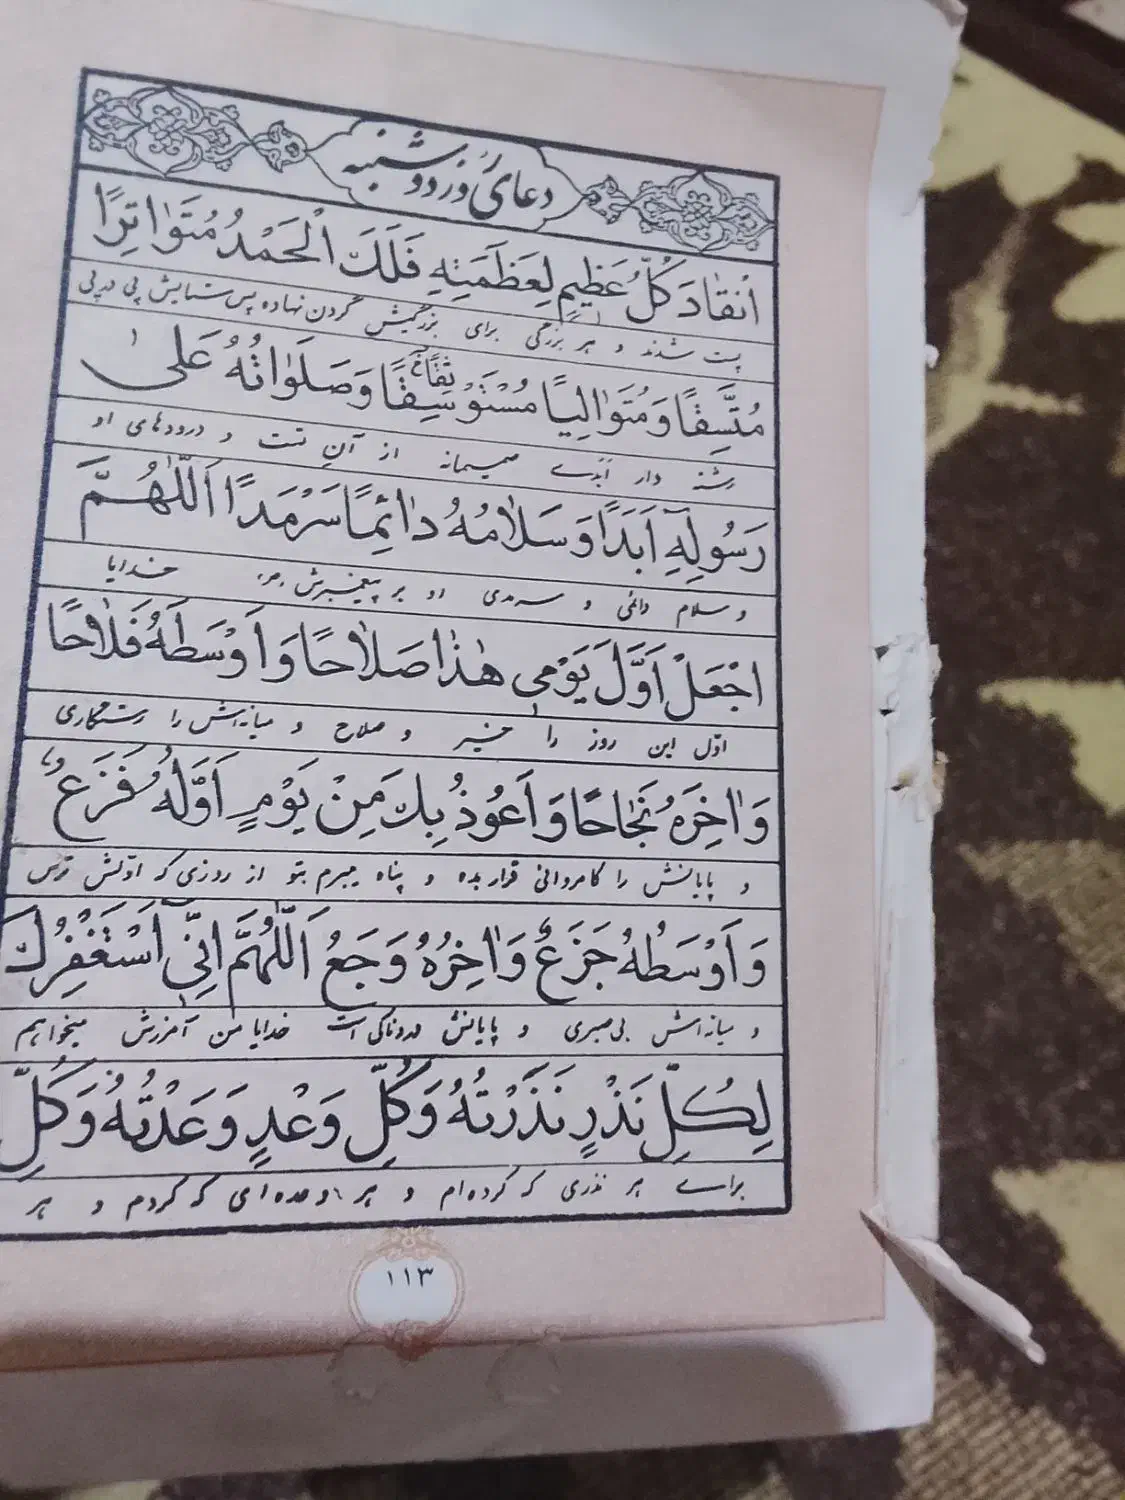 دعای روز دوشنبه
اَنْقٰادَ كُلُّ عَظِيمٍ لِعَظَمَتِهِ فَلَكَ الْحَمْدُ مُتَوٰاتِرًا
پست شدند و هر بزرگی برای بزرگیش گردن نهاده پس ستایش پی درپی
مُتَّسِقًا وَمُتَوٰالِيًا مُسْتَوْسِقًا وَصَلَوٰاتُهُ عَلىٰ
رشته دار ابدی صمیمانه از آنِ تست و درودهای او
رَسُولِهِ اَبَدًا وَسَلٰامُهُ دٰائِمًا سَرْمَدًا اَللّٰهُمَّ
و سلام دائمی و سرمدی او بر پیغمبرش خدایا
اجْعَلْ اَوَّلَ يَوْمي هٰذٰا صَلٰاحًا وَاَوْسَطَهُ فَلٰاحًا
اوّل این روز را خیر و صلاح و میانه‌اش را رستگاری
وَاٰخِرَهُ نَجٰاحًا وَاَعُوذُ بِكَ مِنْ يَوْمٍ اَوَّلُهُ فَزَعٌ
و پایانش را کامروانی قرار بده و پناه میبرم بتو از روزی که اوّلش ترس
وَاَوْسَطُهُ جَزَعٌ وَاٰخِرُهُ وَجَعٌ اَللّٰهُمَّ اِنّي اَسْتَغْفِرُكَ
و میانه‌اش بی‌صبری و پایانش دردناکی است خدایا من آمرزش میخواهم
لِكُلِّ نَذْرٍ نَذَرْتُهُ وَكُلِّ وَعْدٍ وَعَدْتُهُ وَكُلِّ
برای هر نذری که کرده‌ام و هر وعده‌ای که کردم و هر
۱۱۳